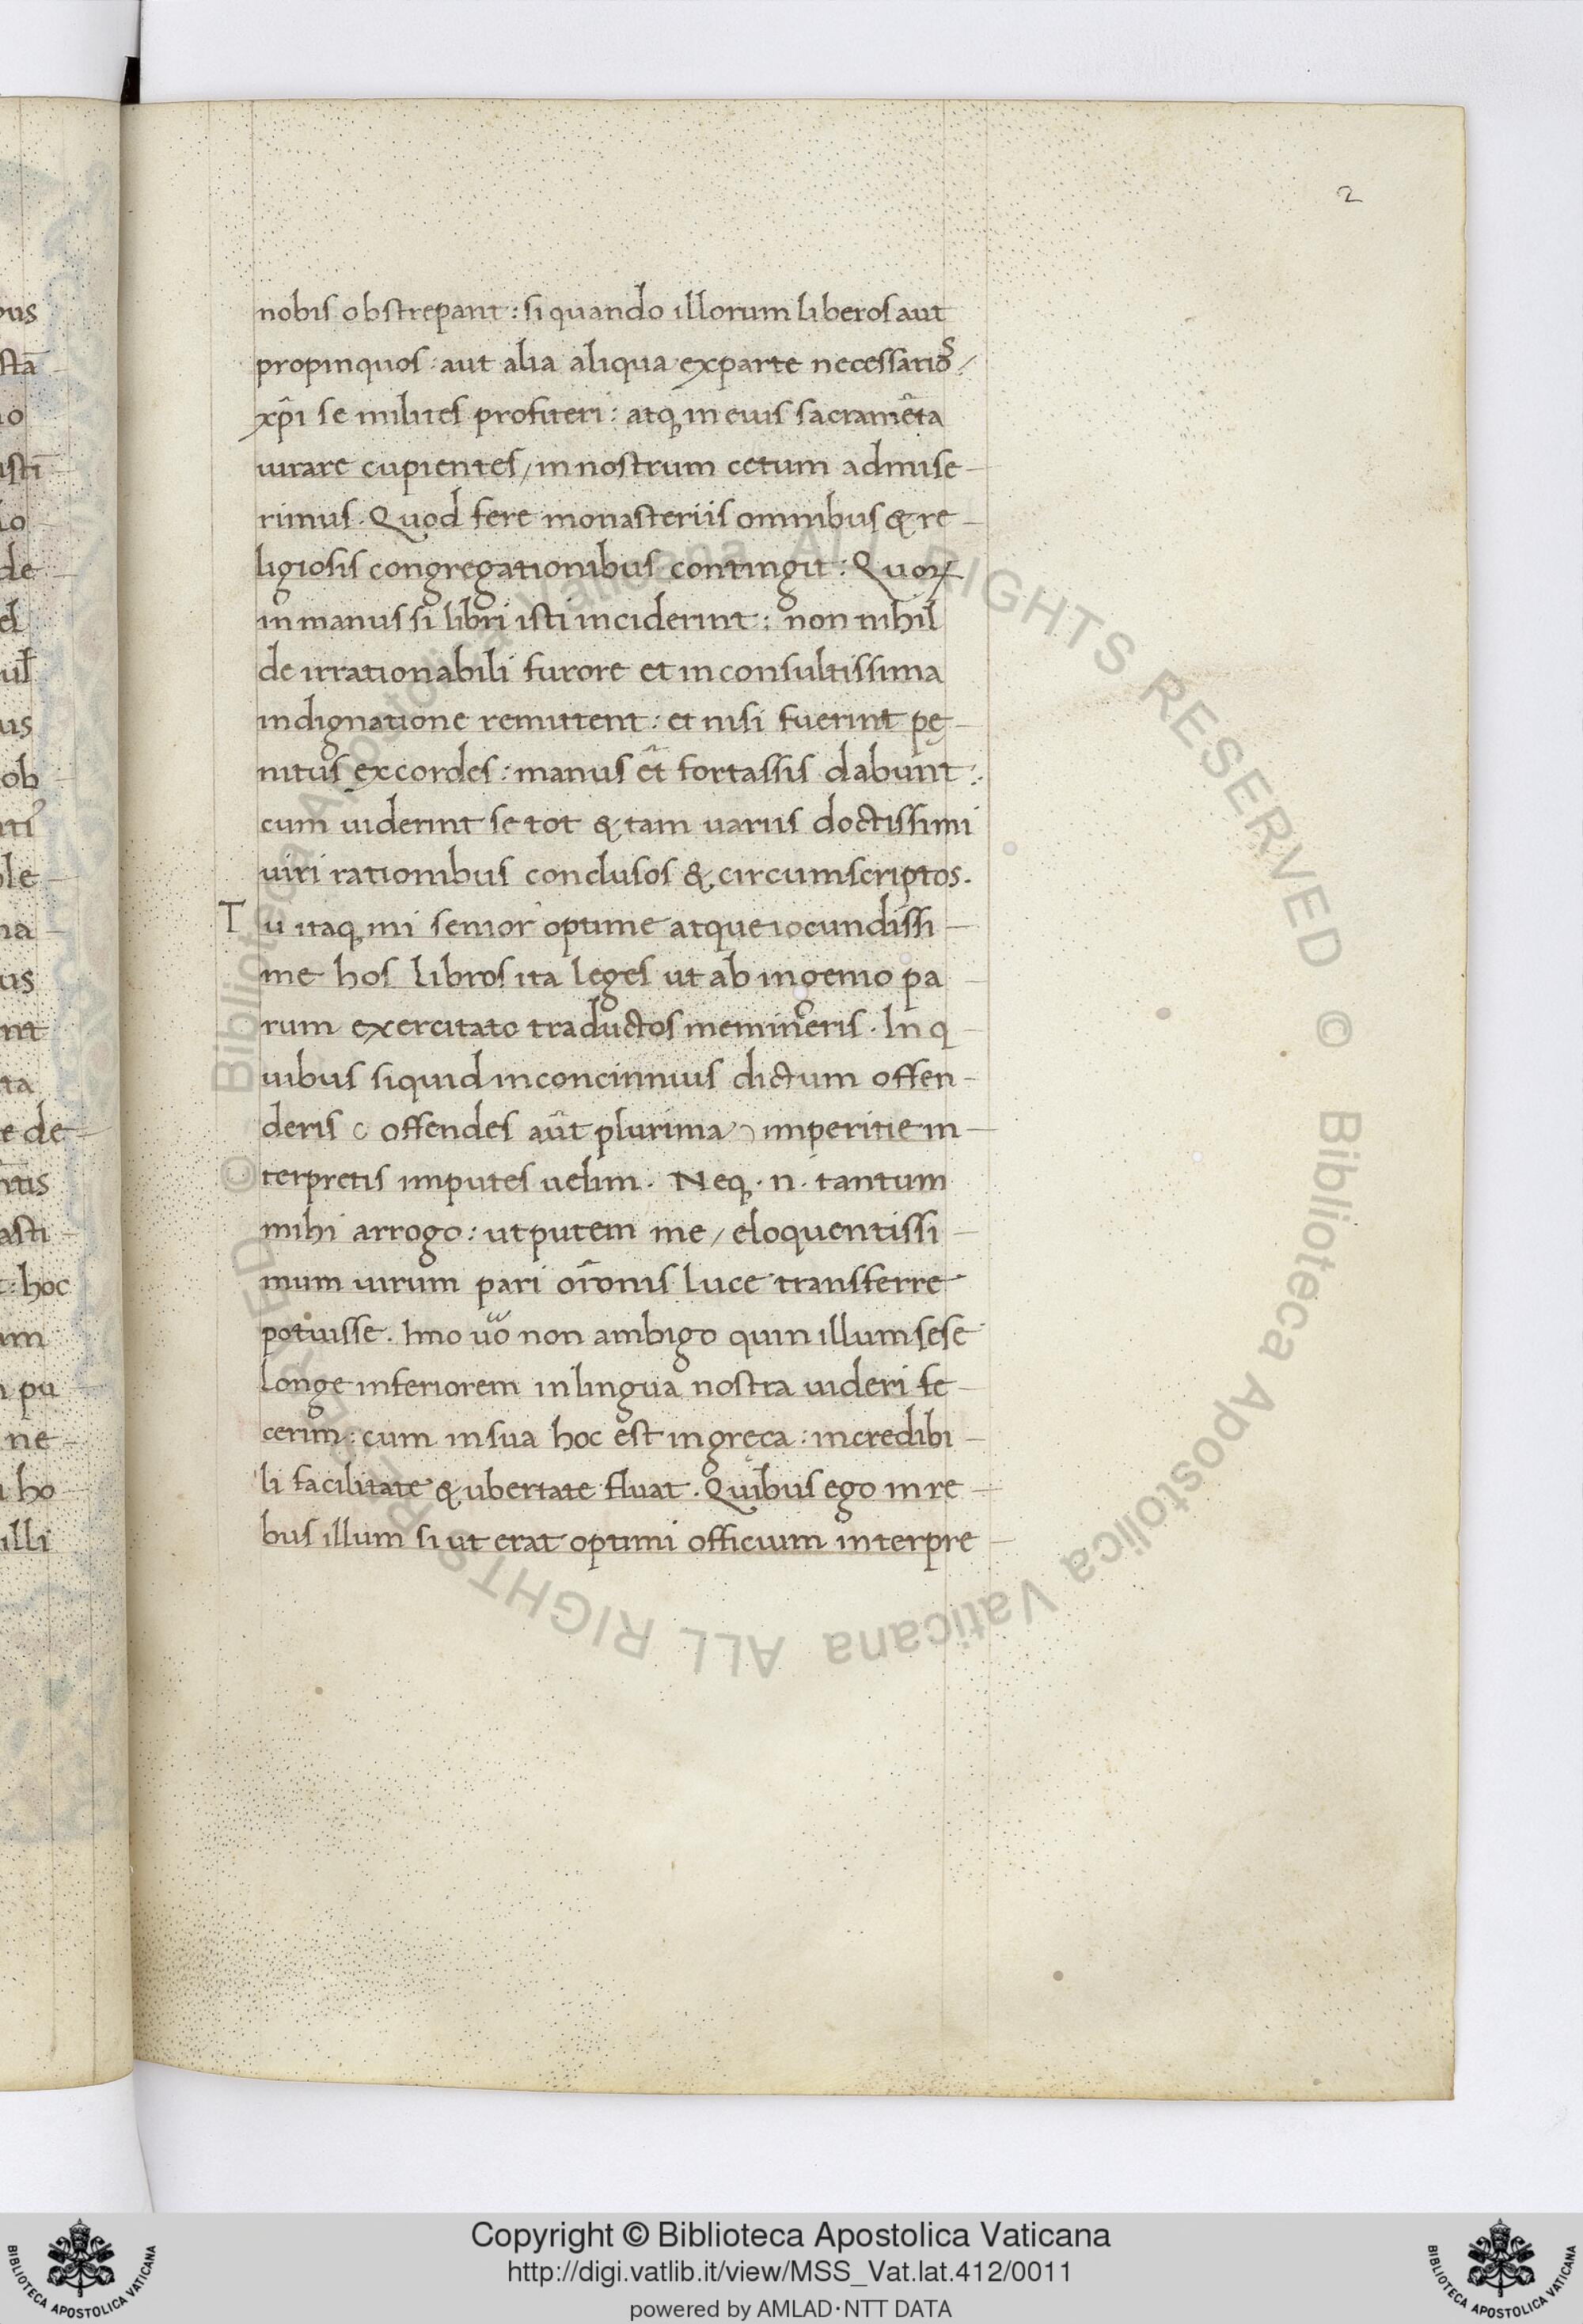 2
nobis obstrepant : si quando illorum liberos aut
propinquos · aut alia aliqua ex parte necessarios /
xp̄i se milites profiteri : atq; in eius sacramēta
iurare cupientes / in nostrum cetum admise-
rimus. Quod fere monasteriis omnibus & re-
ligiosis congregationibus contingit : Quorꝝ
in manus si libri isti inciderint : non nihil
de irrationabili furore et inconsultissima
indignatione remittent : et nisi fuerint pę-
nitus excordes : manus ēt fortassis dabunt :
cum uiderint se tot & tam uariis doctissimi
uiri rationibus conclusos & circumscriptos.
Tu itaq; mi senior optime atque iocundissi-
me hos libros ita leges ut ab ingenio pa-
rum exercitato traductos memineris. In q-
uibus siquid inconcinnius dictum offen-
deris ( offendes aūt plurima ) imperitie in-
terpretis imputes uelim. Neq; ·n· tantum
mihi arrogo : ut putem me / eloquentissi-
mum uirum pari or̄onis luce transferre
potuisse. Imo uō non ambigo quin illum sese
longe inferiorem in lingua nostra uideri fe-
cerim : cum in sua hoc est in gręca : incredibi-
li facilitate & ubertate fluat. Quibus ego in re-
bus illum si ut erat optimi officium interpre-
© Biblioteca Apostolica Vaticana ALL RIGHTS RESERVED © Biblioteca Apostolica Vaticana ALL RIGHTS RESERVED
Copyright © Biblioteca Apostolica Vaticana
http://digi.vatlib.it/view/MSS_Vat.lat.412/0011
powered by AMLAD·NTT DATA
BIBLIOTECA APOSTOLICA VATICANA
BIBLIOTECA APOSTOLICA VATICANA